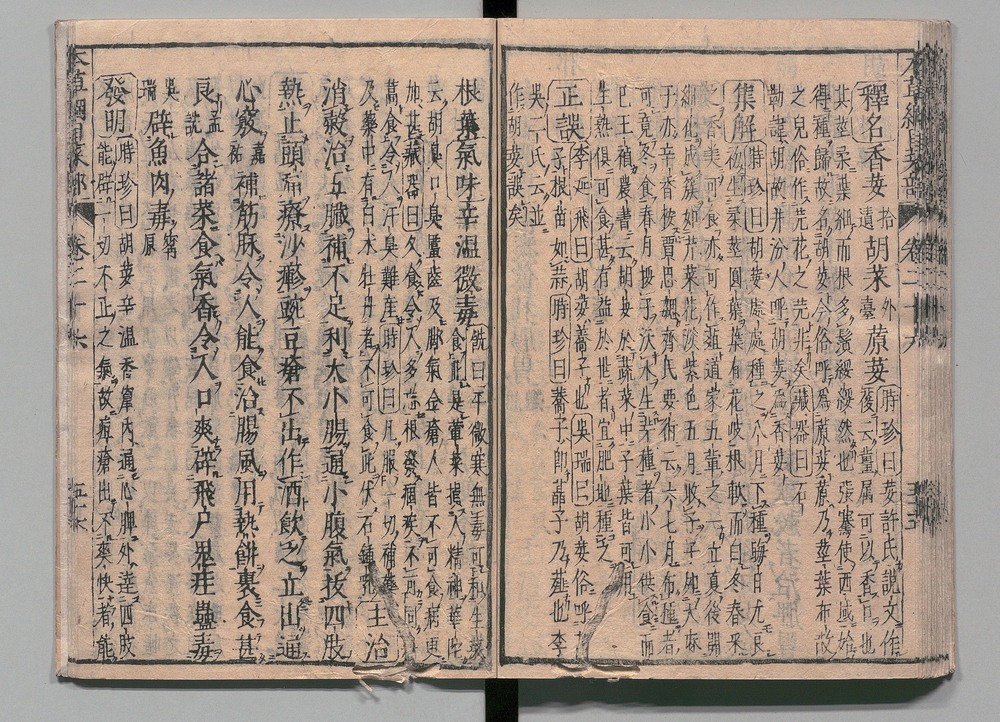 釋名香荽拾遺胡菜外臺蒝荽時珍曰荽許氏說文作
葰云薑属可以香口也
其莖柔葉細而根多鬚綏綏然也張騫使西域始
得種歸故名胡荽今俗呼為蒝荽蒝乃莖葉布散
之皃俗作芫花之芫非矣藏器曰石
勒諱胡故并汾人呼胡荽為香荽
集解時珍曰胡荽處處種之八月下種晦日尤良
初生柔莖圓葉葉有花岐根軟而白冬春采
之香美可食亦可作葅道家五葷之一立夏後開
細花成簇如芹菜花淡紫色五月收子子如大麻
子亦辛香按賈思勰齊民要術云六七月布種者
可竟冬食春月挼子沃水生芽種者小小供食而
已王禎農書云胡荽於蔬菜中子葉皆可用
生熟俱可食甚有益於世者宜肥地種之
正誤李延飛曰胡荽蕎子也吳瑞曰胡荽俗呼
子根苗如蒜時珍曰蕎子即藠子乃薤也李
吳二氏云並
作胡荽誤矣
根葉氣味辛溫微毒詵曰平微寒無毒可和生菜
食此是葷菜損人精神華佗
云胡臭口臭䘌齒及脚氣金瘡人皆不可食病更
加甚藏器曰久食令人多忘根發痼疾不可同邪
蒿食令人汗臭難産時珍曰凡服一切補藥
及藥中有白朮牡丹者不可食此伏石鍾乳主治
消穀治五臟補不足利大小腸通小腹氣拔四肢
熱止頭痛療沙疹豌豆瘡不出作酒飲之立出通
心竅嘉祐補筋脉令人能食治腸風用熱餅裹食甚
良孟詵合諸菜食氣香令人口爽辟飛尸鬼疰蠱毒
吳瑞辟魚肉毒寗原
發明時珍曰胡荽辛溫香竄內通心脾外達四肢
能辟一切不正之氣故痘瘡出不爽快者能
本草綱目菜部 卷二十六